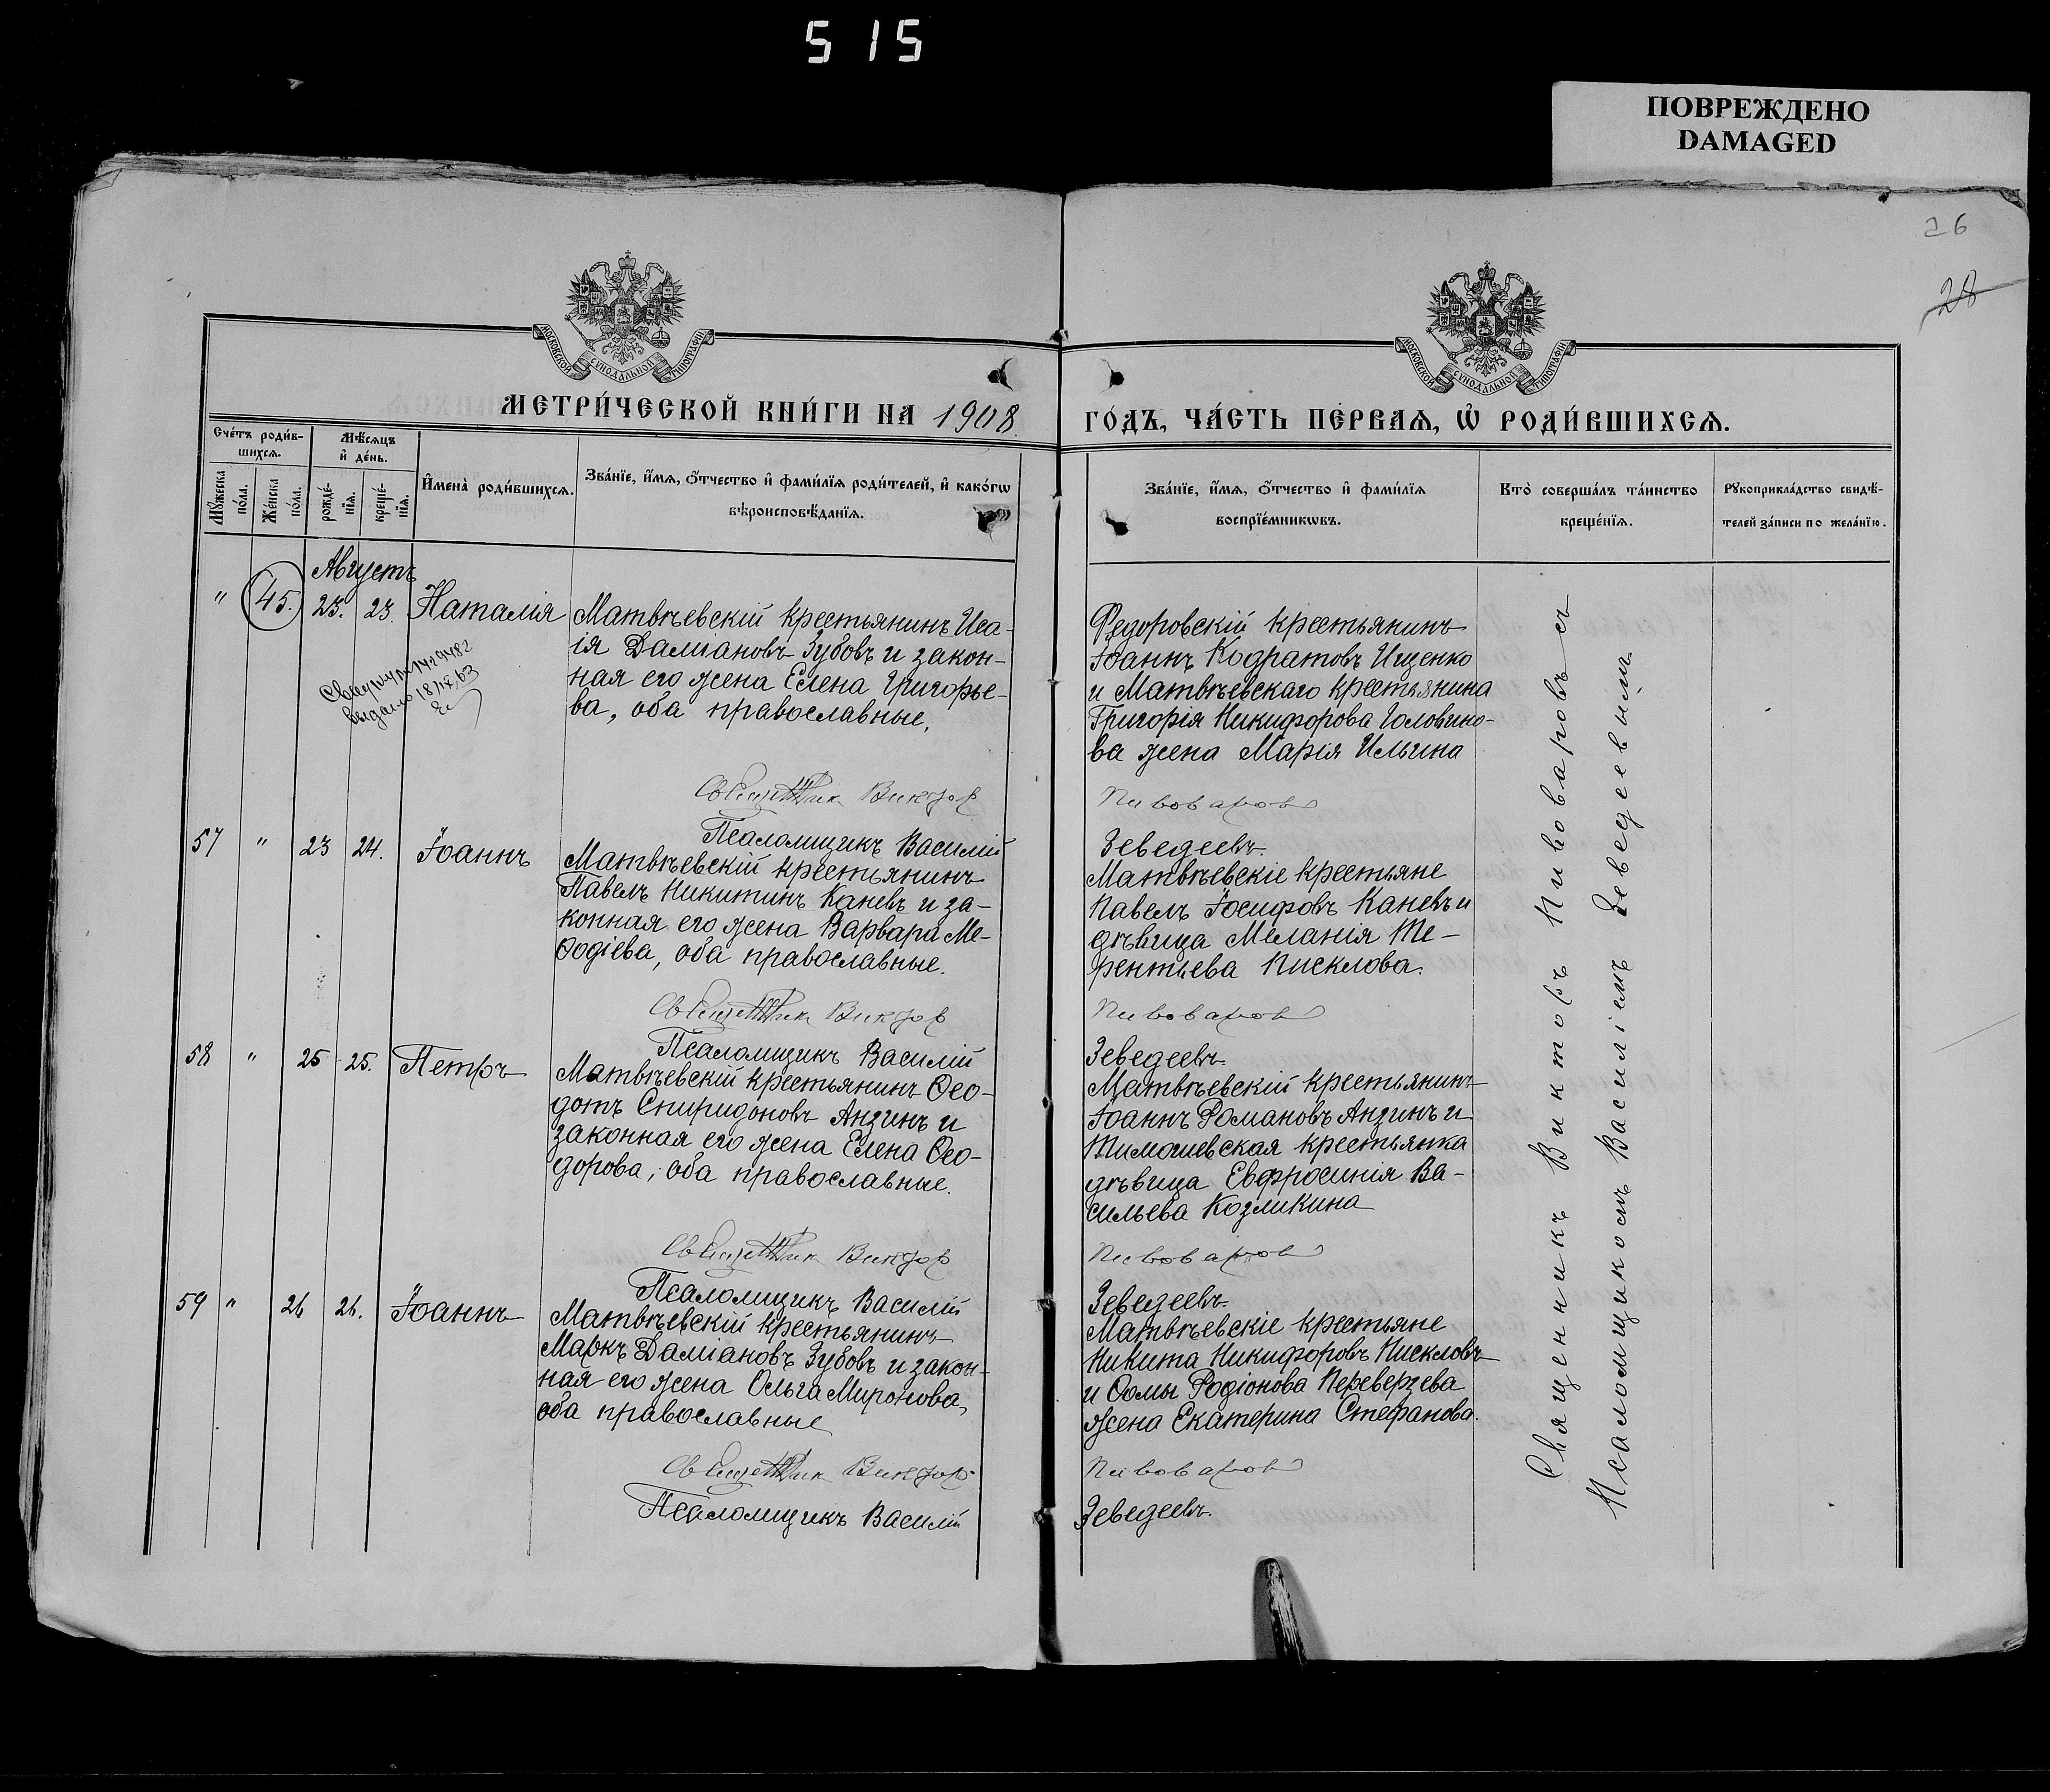 515
ПОВРЕЖДЕНО
DAMAGED
26
28
МОСКОВСКОЙ СѴНОДАЛЬНОЙ ТИПОГРАФІИ
МОСКОВСКОЙ СѴНОДАЛЬНОЙ ТИПОГРАФІИ
МЕТРИ́ЧЕСКОЙ КНИ́ГИ НА 1908
ГО́ДЪ, ЧА́СТЬ ПЕ́РВАѦ, Ѡ҆ РОДИ́ВШИХСѦ.
Сче́тъ роди́в-
шихсѧ.
Мѣ́сѧцъ
и҆ де́нь.
Мꙋ́жеска
по́ла.
Же́нска
по́ла.
рожде́-
нїѧ.
креще́-
нїѧ.
И҆мена̀ роди́вшихсѧ.
Зва́нїе, и҆́мѧ, ѻ҆́тчество и҆ фами́лїѧ роди́телей, и҆ како́гѡ
вѣроисповѣ́данїѧ.
Зва́нїе, и҆́мѧ, ѻ҆́тчество и҆ фами́лїѧ
воспрїе́мникѡвъ.
Кто̀ соверша́лъ та́инство
креще́нїѧ.
Рꙋкоприкла́дство свидѣ́-
телей за́писи по жела́нїю.
Августъ
" 45. 23. 23. Наталія
Матвѣевскій крестьянинъ Иса-
ія Даміановъ Зубовъ и закон-
ная его жена Елена Григорье-
ва, оба православные,
выдано
Федоровскій крестьянинъ
Іоаннъ Кодратовъ Ищенко
и Матвѣевскаго крестьянина
Григорія Никифорова Головино-
ва жена Марія Ильина
Священник Виктор Пивоваров
Псаломщикъ Василій Зеведеевъ.
57 " 23 24. Іоаннъ
Матвѣевскій крестьянинъ
Павелъ Никитинъ Каневъ и за-
конная его жена Варвара Ме-
ѳодіева, оба православные.
Матвѣевскіе крестьяне
Павелъ Іосифовъ Каневъ и
дѣвица Меланія Те-
рентьева Писклова.
Священник Виктор Пивоваров
Псаломщикъ Василій Зеведеевъ.
58 " 25 25. Петръ
Матвѣевскій крестьянинъ Ѳео-
дотъ Спиридоновъ Анзинъ и
законная его жена Елена Ѳео-
дорова, оба православные.
Матвѣевскій крестьянинъ
Іоаннъ Романовъ Анзинъ и
Тимошевская крестьянка
дѣвица Евфросинія Ва-
сильева Козликина
Священник Виктор Пивоваров
Псаломщикъ Василій Зеведеевъ.
59 " 26 26. Іоаннъ
Матвѣевскій крестьянинъ
Маркъ Даміановъ Зубовъ и закон-
ная его жена Ольга Миронова,
оба православные
Матвѣевскіе крестьяне
Никита Никифоровъ Пискловъ
и Ѳомы Родіонова Переверзева
жена Екатерина Стефанова.
Священник Виктор Пивоваров
Псаломщикъ Василій Зеведеевъ.
Священникъ Викторъ Пивоваровъ съ
Псаломщикомъ Василіемъ Зеведеевымъ.